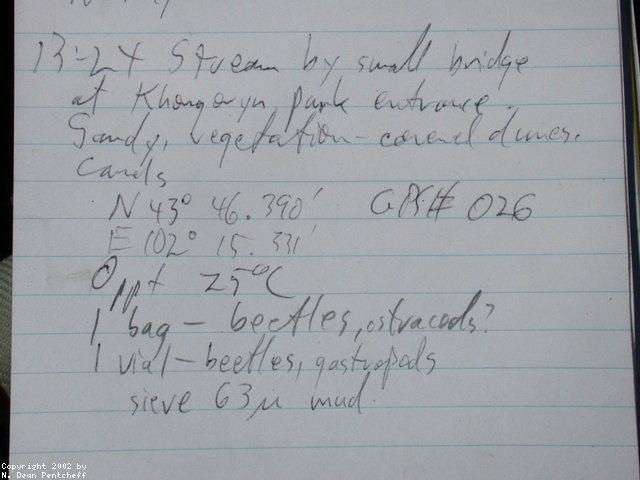 13:24 Stream by small bridge
at Khongoryn park entrance.
Sandy, vegetation-covered dunes.
N 43° 46.390' GPS# 026
E 102° 15.331'
0 ppt 25°C
1 bag - beetles, ostracods?
1 vial - beetles, gastropods
sieve 63µ mud.
Copyright 2002 by
N. Dean Pentcheff